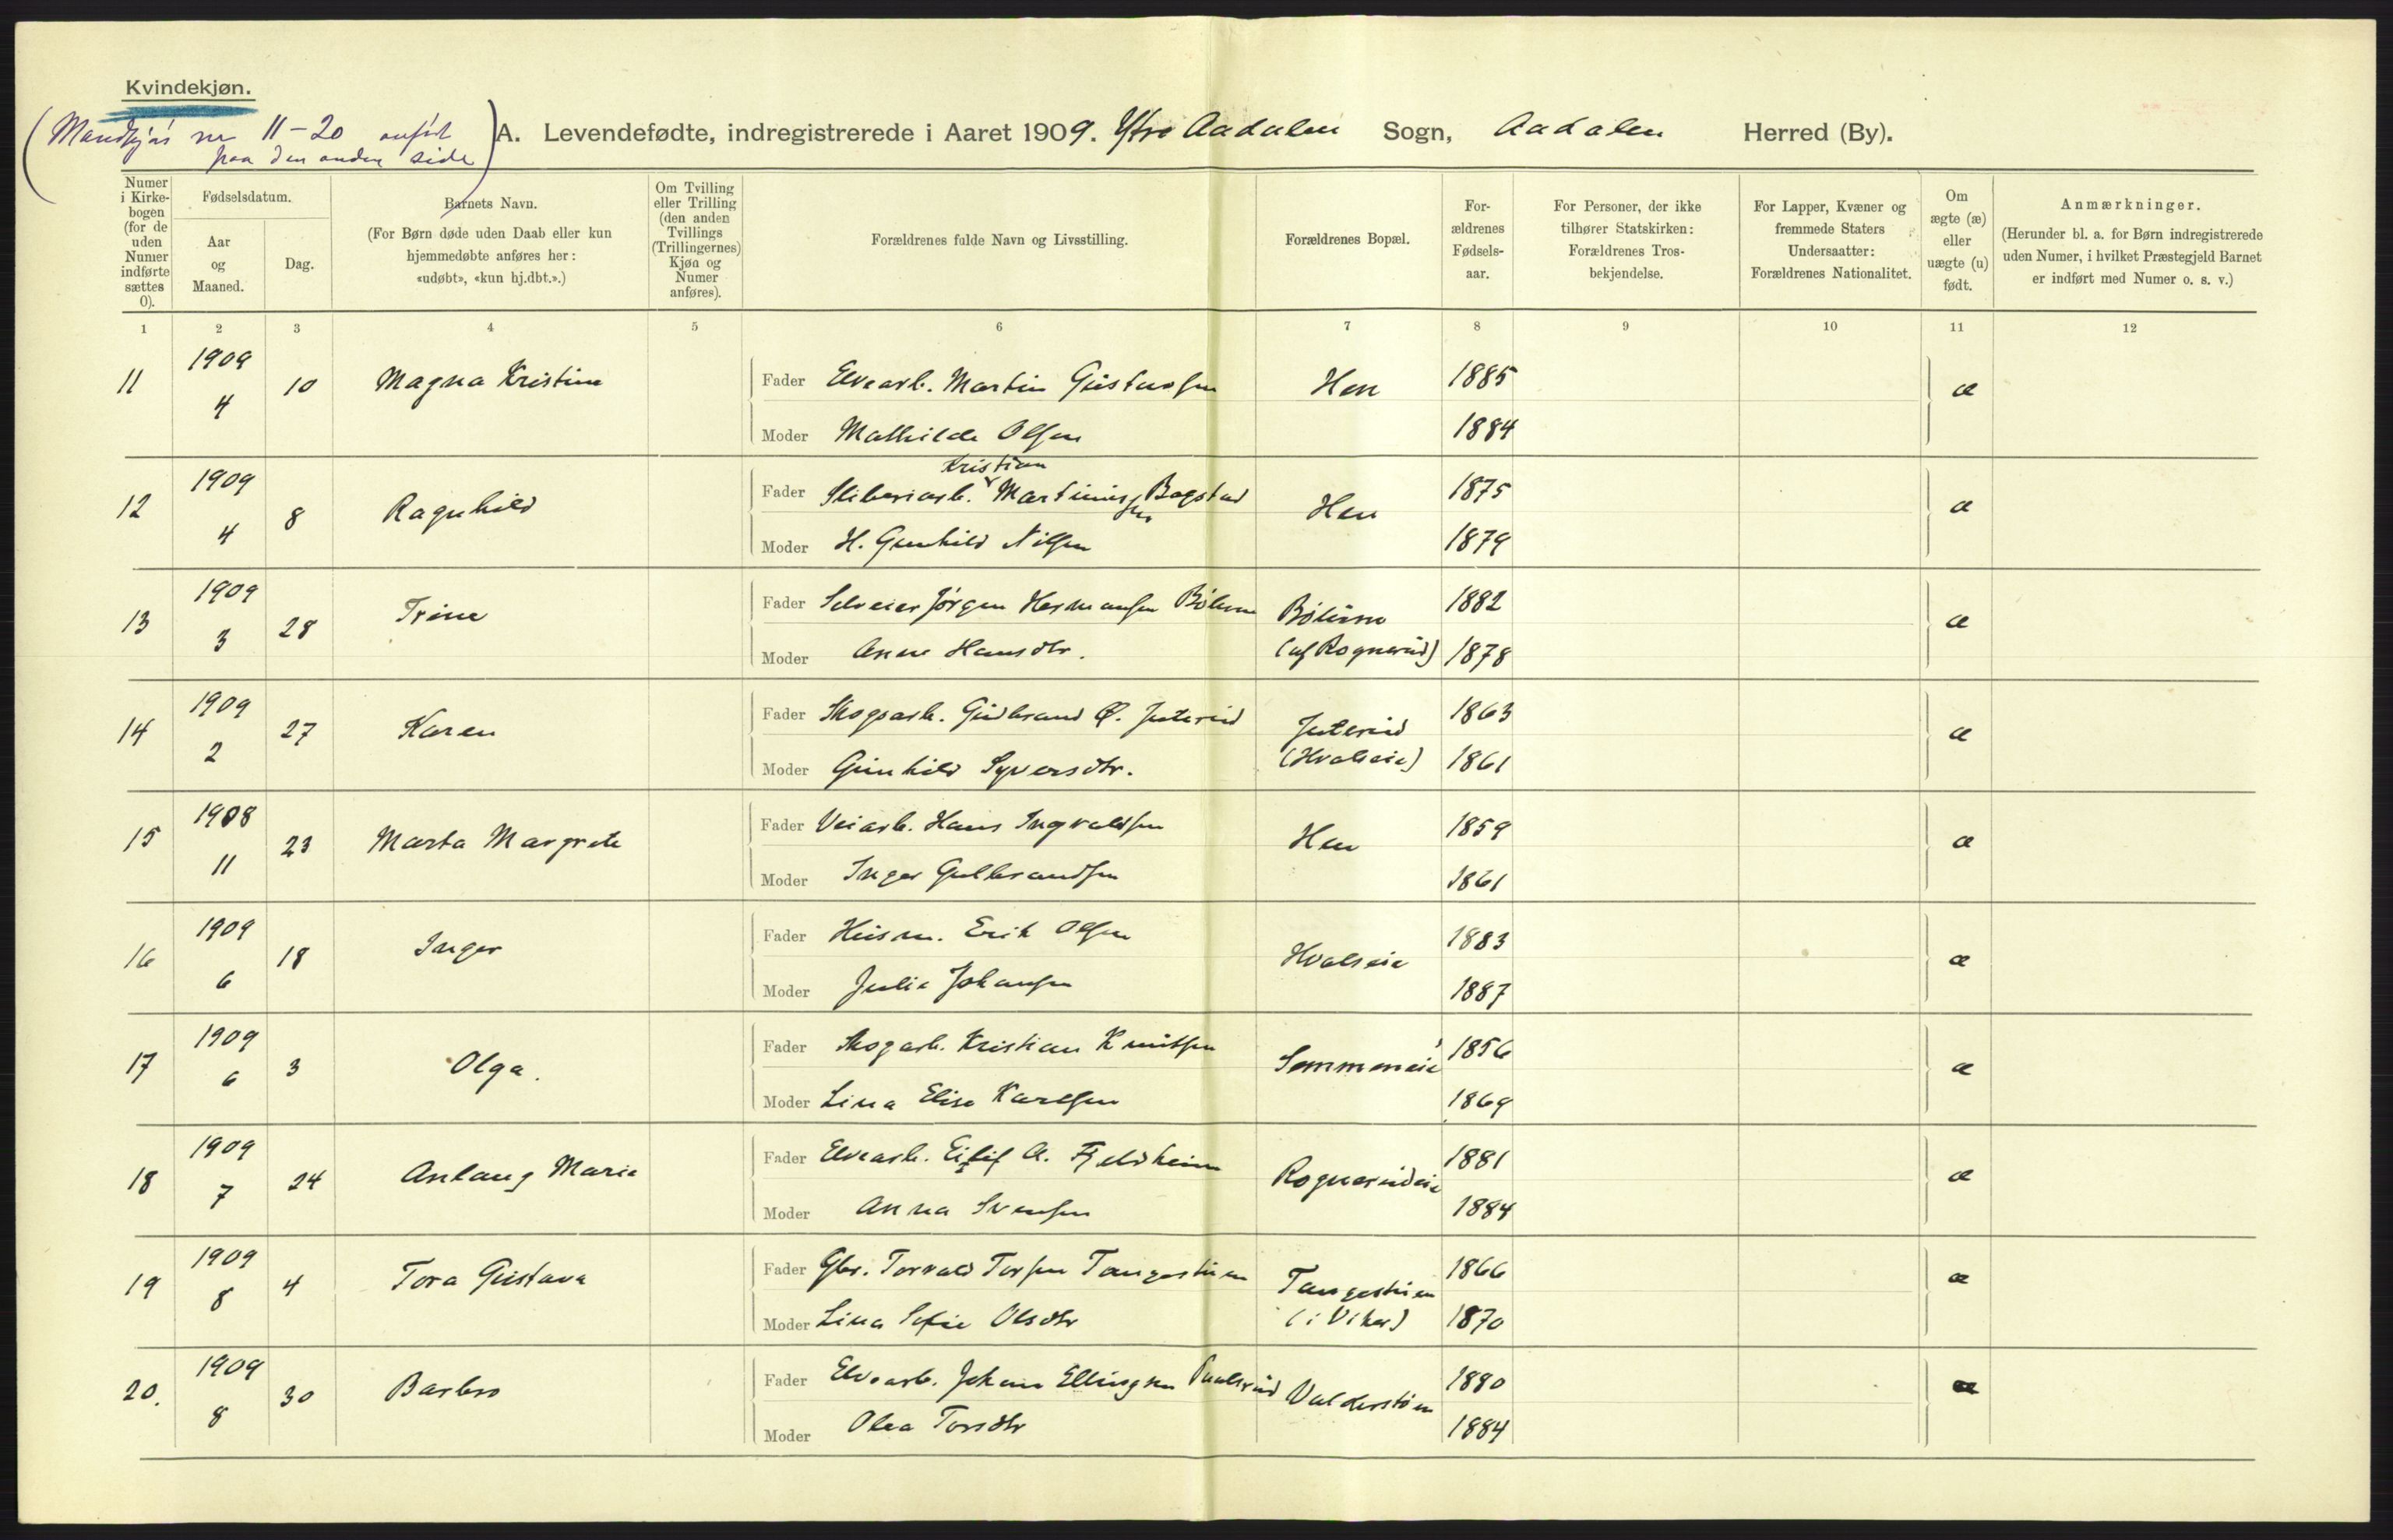 Kvindekjøn.
(Mandkjøn nr 11-20 anført
paa den anden side)
A. Levendefødte, indregistrerede i Aaret 1909. Ytre Aadalen Sogn, Aadalen Herred (By).
Numer i Kirkebogen (for de uden Numer indførte sættes 0).
Fødselsdatum.
Aar og Maaned.
Dag.
Barnets Navn.
(For Børn døde uden Daab eller kun hjemmedøbte anføres her: «udøbt», «kun hj.dbt.».)
Om Tvilling eller Trilling (den anden Tvillings (Trillingernes) Kjøn og Numer anføres).
Forældrenes fulde Navn og Livsstilling.
Forældrenes Bopæl.
For-ældrenes Fødsels-aar.
For Personer, der ikke tilhører Statskirken: Forældrenes Tros-bekjendelse.
For Lapper, Kvæner og fremmede Staters Undersaatter: Forældrenes Nationalitet.
Om ægte (æ) eller uægte (u) født.
Anmærkninger.
(Herunder bl. a. for Børn indregistrerede uden Numer, i hvilket Præstegjeld Barnet er indført med Numer o. s. v.)
1 2 3 4 5 6 7 8 9 10 11 12
11 1909 4 10 Magna Kristine Fader Elvearb. Martin Gustavsen Hen 1885 æ
Moder Mathilde Olsen 1884
12 1909 4 8 Ragnhild Fader Sliberiarb. Kristian Martinius sen Bagstad Hen 1875 æ
Moder H. Gunhild Nilsen 1879
13 1909 3 28 Trine Fader Selveier Jørgen Hermansen Bølerne Bølerne 1882 æ
Moder Anne Hansdtr. (af Rognerud) 1878
14 1909 2 27 Karen Fader Skogsarb. Gudbrand O. Juterud Juterud 1863 æ
Moder Gunhild Syversdtr. (Hvalseie) 1861
15 1908 11 23 Marta Margrete Fader Veiarb. Hans Ingvaldsen Hen 1859 æ
Moder Inger Gulbrandsen 1861
16 1909 6 18 Inger Fader Husm. Erik Olsen Hvalseie 1883 æ
Moder Julie Johansen 1887
17 1909 6 3 Olga. Fader Skogarb. Kristian Knutsen Semmeneie 1856 æ
Moder Lina Elise Karlsen 1869
18 1909 7 24 Aslaug Marie Fader Elvearb. Eilif A. Fjeldheim Rognerudeie 1881 æ
Moder Anna Svensen 1884
19 1909 8 4 Tora Gustava Fader Gbr. Torvald Torsen Tangestuen Tangestuen 1866 æ
Moder Lina Sofie Olsdtr (i Viker) 1870
20. 1909 8 30 Barbro Fader Elvearb. Johan Ellingsen Paalerud Valderstøen 1880 æ
Moder Olea Torsdtr 1884